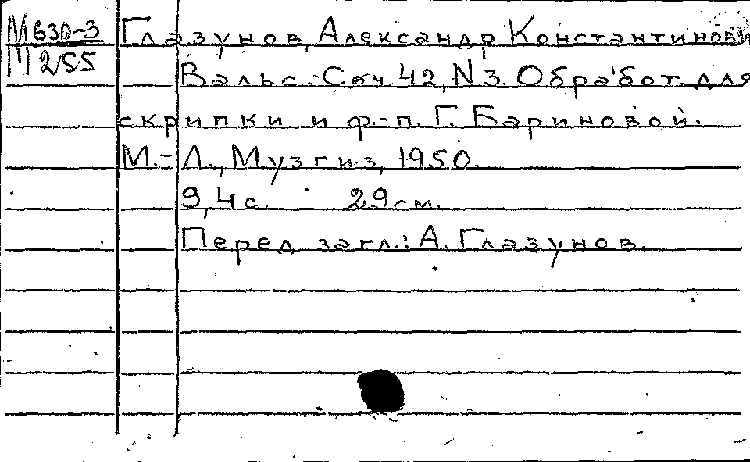 М630-3 Глазунов, Александр Константинович
М255 Вальс. Соч. 42, N3. Обработ. для
скрипки и ф.-п. Г. Бариновой.
М.-Л., Музгиз, 1950.
9,4с. 29см.
Перед загл.: А. Глазунов.